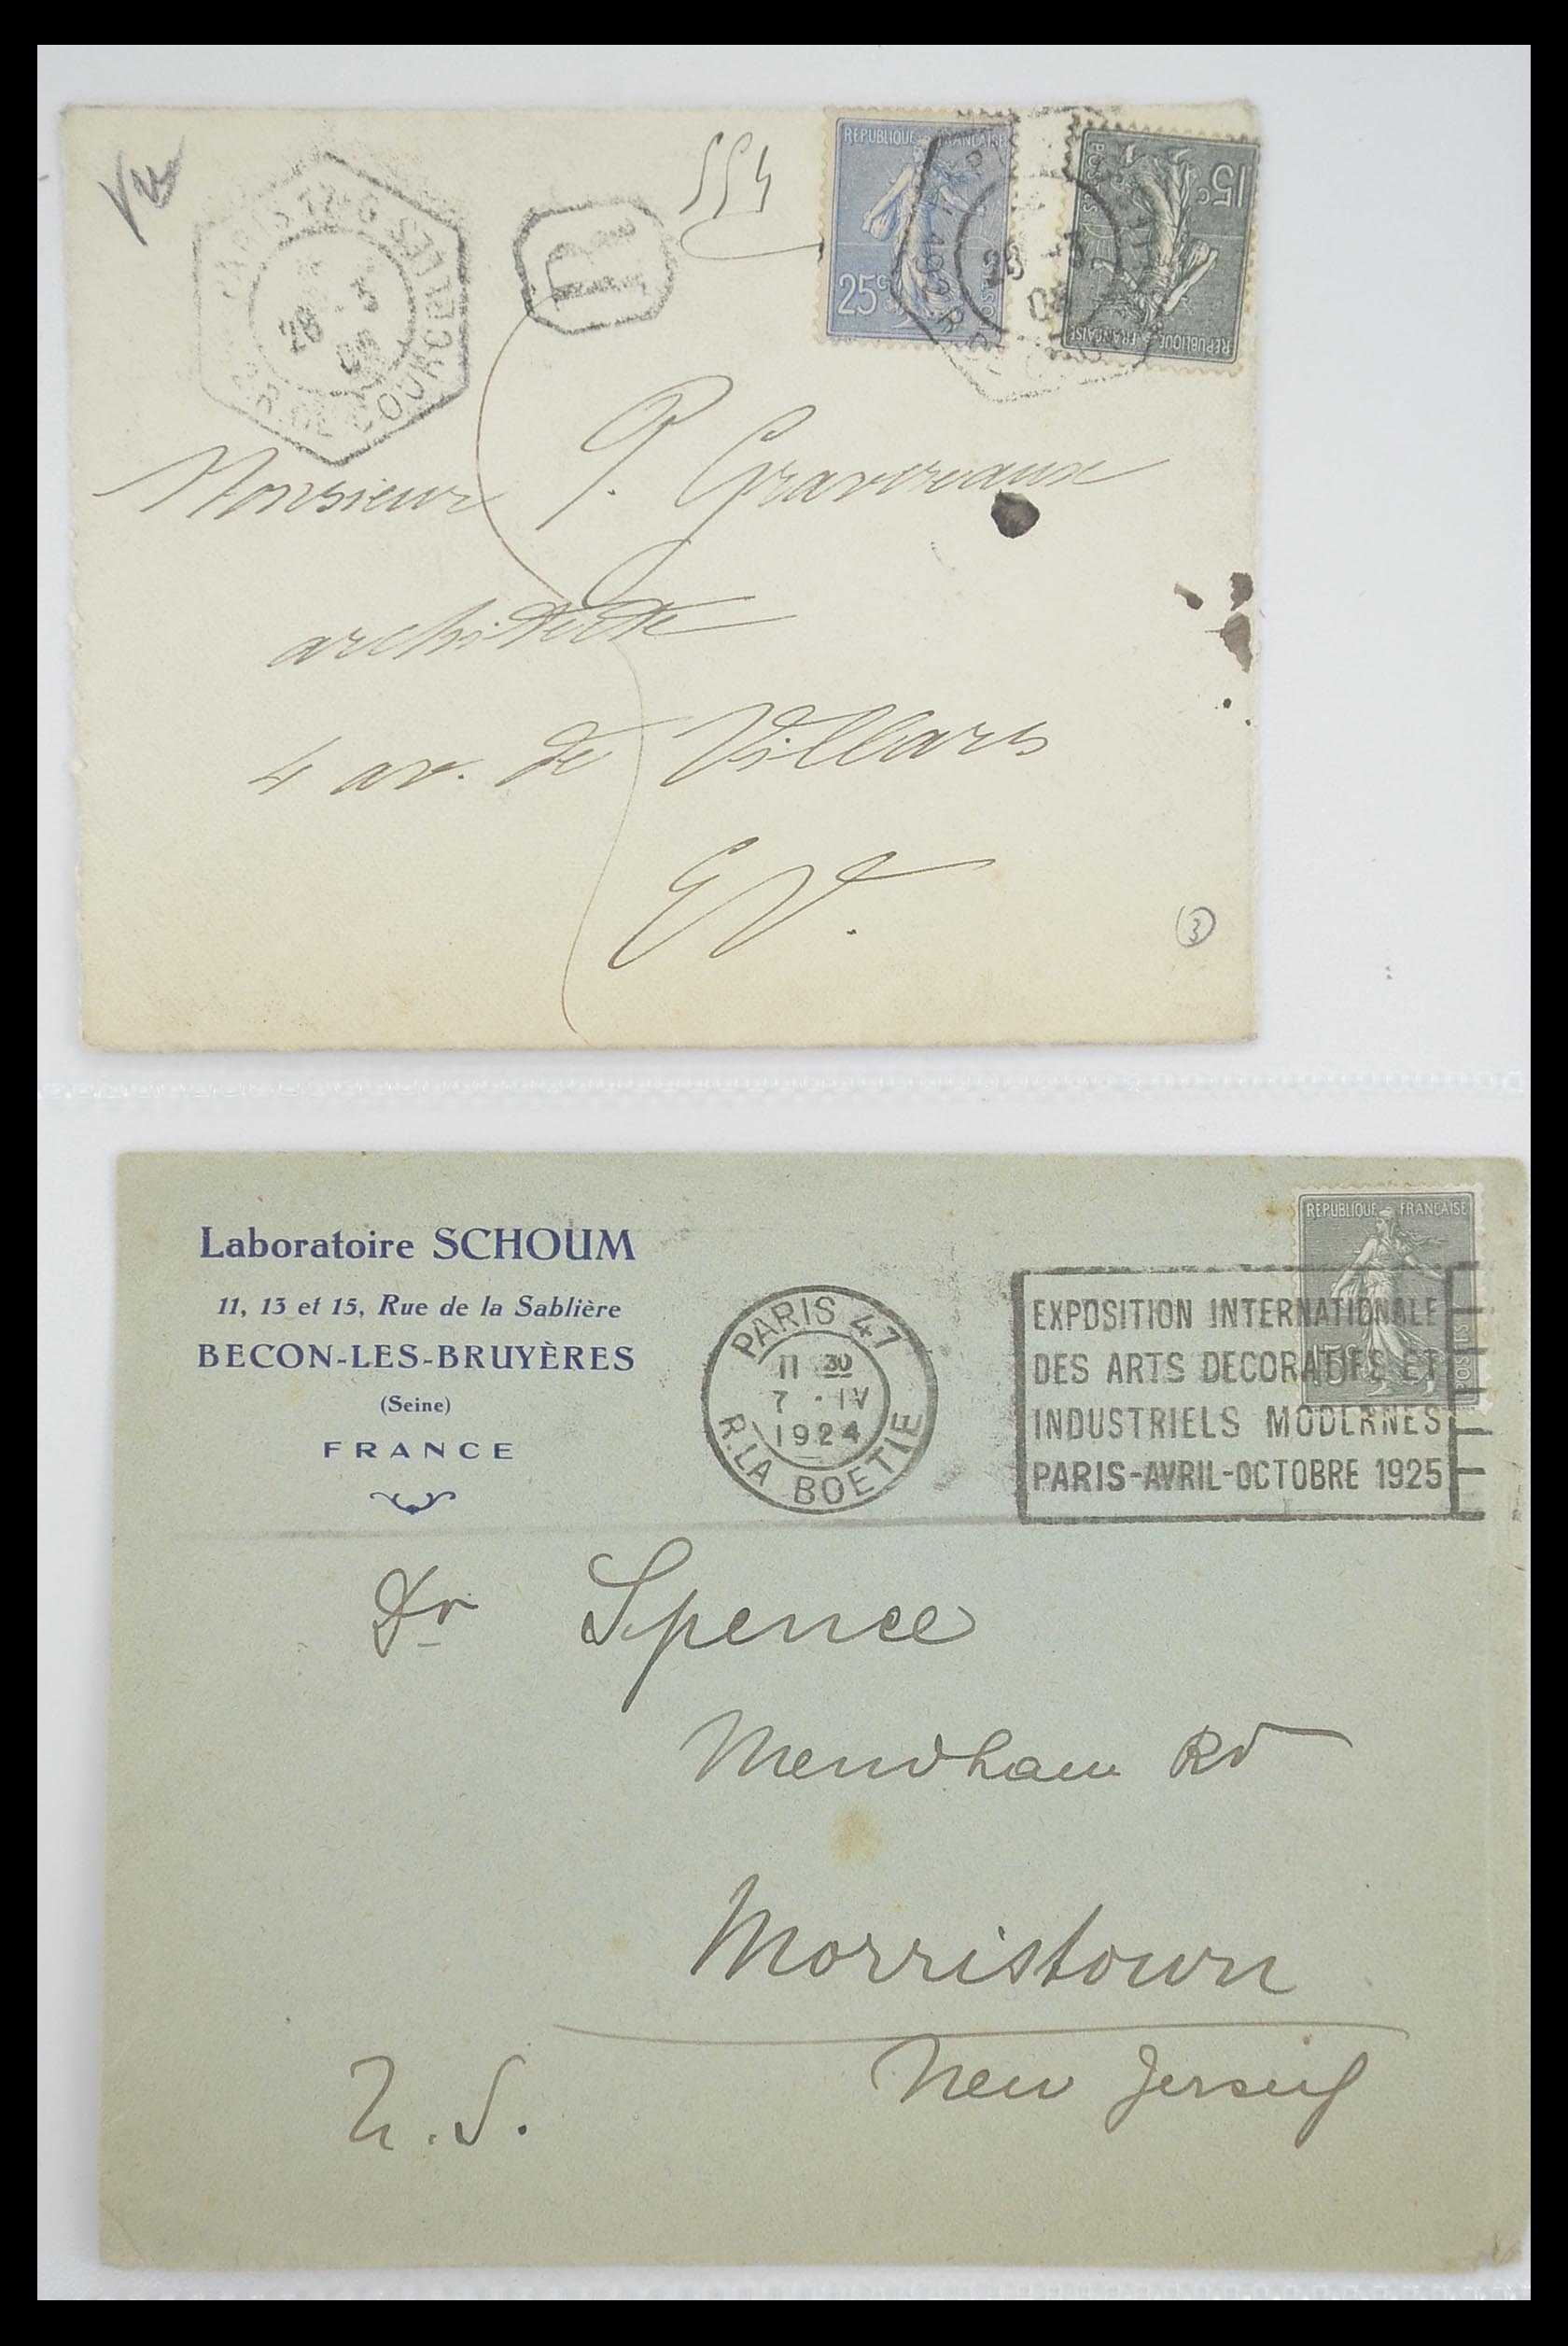 R
554
REPUBLIQUE FRANÇAISE
25c
POSTES
28 - 3
15c
POSTES
REPUBLIQUE FRANÇAISE
28 - 3
Monsieur P. Gravereaux
architecte
4 av. de Villars
EV.
3
Laboratoire SCHOUM
11, 13 et 15, Rue de la Sablière
BECON-LES-BRUYÈRES
(Seine)
FRANCE
PARIS 47
11 30
7 · IV
1924
R. LA BOETIE
REPUBLIQUE FRANÇAISE
15c
POSTES
EXPOSITION INTERNATIONALE
DES ARTS DECORATIFS ET
INDUSTRIELS MODERNES
PARIS-AVRIL-OCTOBRE 1925
Dr Spence
Mendham Rd
Morristown
New Jersey
U.S.